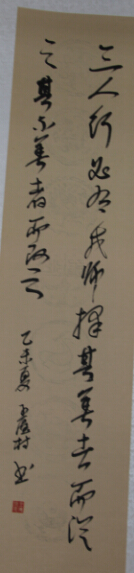 三人行必有我师择其善者而从
之其不善者而改之
乙未夏
村书